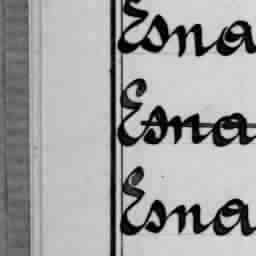 Esna
Esna
Esna